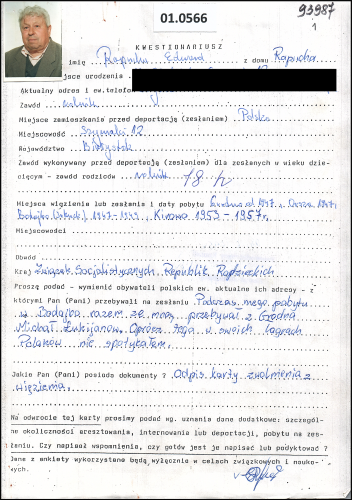 01.0566
93987
1
KWESTIONARIUSZ
imię Rapucha Edward z domu Rapucha
jsce urodzenia
Aktualny adres i ew.telefon
Zawód rolnik
Miejsce zamieszkania przed deportacją (zesłaniem) Polska
Miejscowość Szymaki 12
Województwo Białystok
Zawód wykonywany przed deportacją (zesłaniem) dla zesłanych w wieku dzie-
cięcym - zawód rodziców rolnik 18 r
Miejsca więzienia lub zesłania i daty pobytu Grodno od 1947 r Orsza 1947r
1947-1949, Kirowa 1953-1957r.
Miejscowości
Obwód
Kraj Związek Socjalistycznych Republik Radzieckich
Proszę podać - wymienić obywateli polskich ew. aktualne ich adresy - z
którymi Pan (Pani) przebywali na zesłaniu Podczas mego pobytu
w Bodajbo razem ze mną przebywał z Grodna
Michał Łukijanow. Oprócz tego w swoich łagrach
Polaków nie spotykałem.
Jakie Pan (Pani) posiada dokumenty ? Odpis karty zwolnienia z
więzienia.
Na odwrocie tej karty prosimy podać wg. uznania dane dodatkowe: szczegól-
ne okoliczności aresztowania, internowania lub deportacji, pobytu na ze-
słaniu. Czy napisał wspomnienia, czy gotów jest je napisać lub podyktować ?
Dane z ankiety wykorzystane będą wyłącznie w celach związkowych i nauko-
wych.